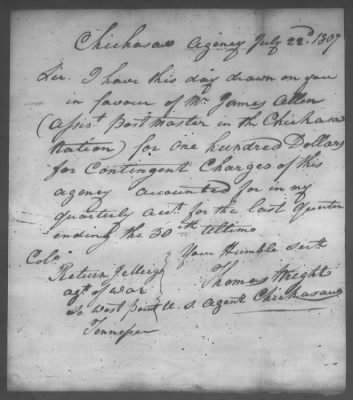 Chickasaw Agency July 22d. 1807
Sir. I have this day drawn on you
in favour of Mr James Allen
(assist. postmaster in the Chickasaw
Nation) for one hundred Dollars
for Contingent Charges of this
agency accounted for in my
quarterly acct. for the last quarter
ending the 30th ultimo
Your Humble Servt
Colo.
Return J Meigs
agt. of war
So west point
Tennessee
Thomas Wright
U. S. Agent Chickasaws